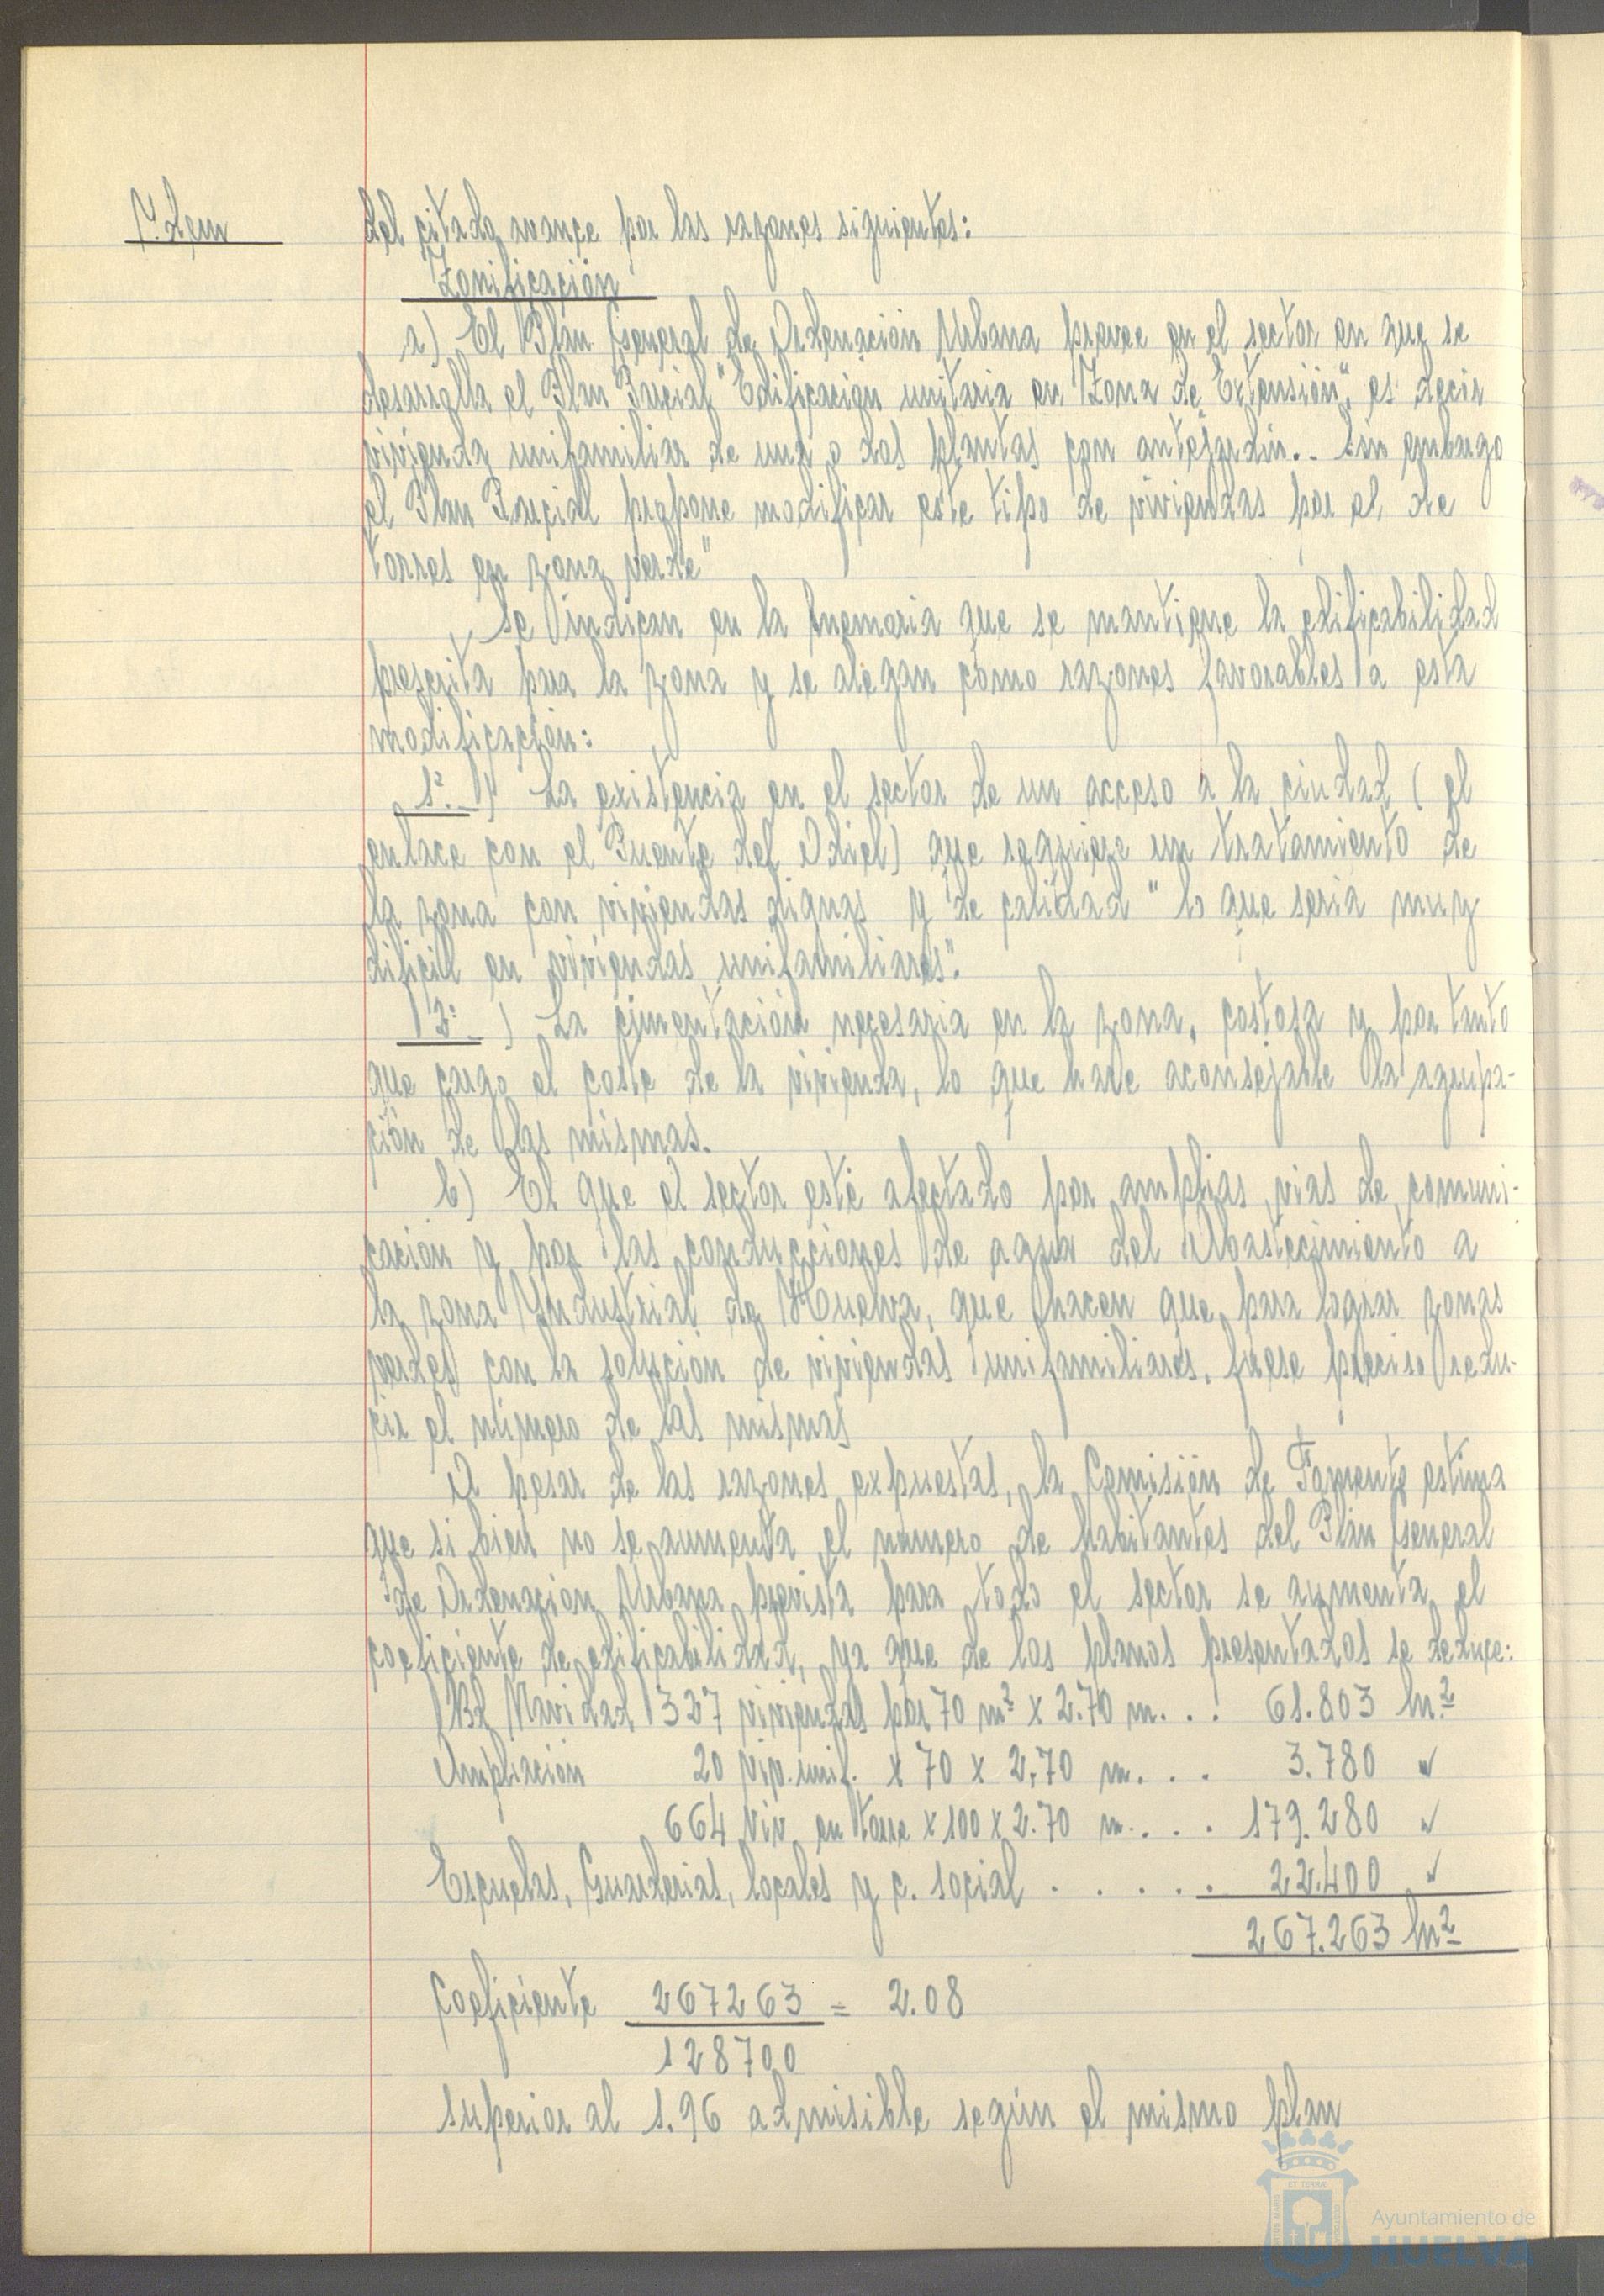 Ydem
del citado avance por las razones siguientes:
Zonificación
a) El Plan General de Ordenación Urbana prevee en el sector en que se
desarrolla el Plan Parcial "Edificacion unitaria en Zona de Extensión", es decir
vivienda unifamiliar de una o dos plantas con antejardin.. Sin embargo
el Plan Parcial propone modificar este tipo de viviendas por el de
torres en zona verde"
Se indican en la memoria que se mantiene la edificabilidad
prescrita para la zona y se alegan como razones favorables a esta
modificación:
1º.-) La existencia en el sector de un acceso a la ciudad (el
enlace con el Puente del Odiel) que requiere un tratamiento de
la zona con viviendas dignas y de calidad "lo que seria muy
dificil en viviendas unifamiliares".
2º-) La cimentación necesaria en la zona, costosa y por tanto
que carga el coste de la vivienda, lo que hace aconsejable la agrupa-
ción de las mismas.
b) El que el sector esté afectado por amplias vias de comuni-
cación y por las conducciones de agua del Abastecimiento a
la zona Yndustrial de Huelva, que hacen que para lograr zonas
verdes con la solución de viviendas unifamiliares, fuese preciso redu-
cir el número de las mismas
A pesar de las razones expuestas, la Comisión de Fomento estima
que si bien no se aumenta el número de habitantes del Plan General
de Ordenacion Urbana prevista para todo el sector se aumenta el
coeficiente de edificabilidad, ya que de los planos presentados se deduce:
Bda Navidad 327 viviendas por 70 m² x 2.70 m. . . 61.803 m²
Ampliación 20 viv. unif. x 70 x 2,70 m. . . 3.780 "
664 viv en torre x 100 x 2.70 m. . . . 179.280 "
Escuelas, Guarderias, locales y c. social . . . . . 22.400 "
267.263 m²
Coeficiente 267263 = 2.08
128700
superior al 1.96 admisible según el mismo plan
Ayuntamiento de
HUELVA